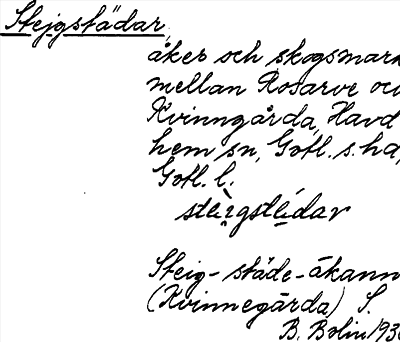 Stejgstädar,
åker och skogsmark
mellan Rosarve och
Kvinngårda, Havd
hem sn, Gotl. s. hd,
Gotl. l.
Steig-städe-åkann
(Kvinnegårda) S.
B. Bolin 193